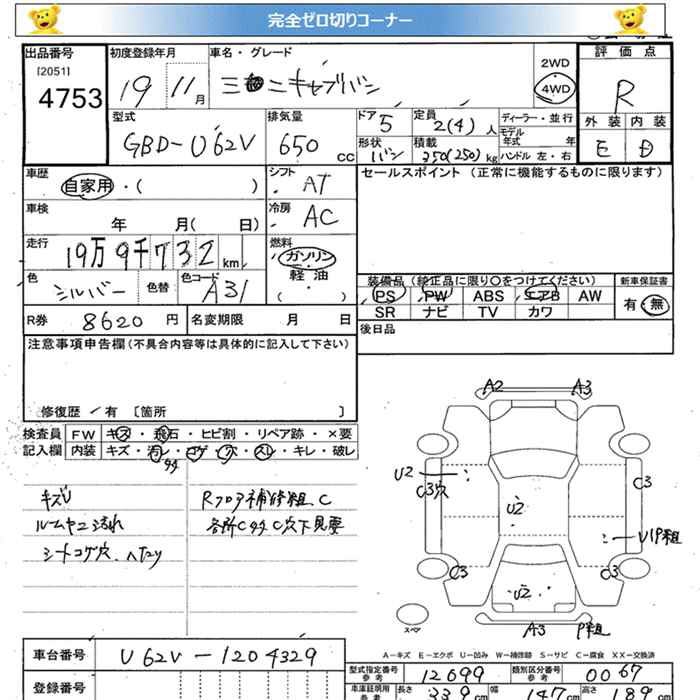 完全ゼロ切りコーナー
出品番号 初度登録年月 車名・グレード 評価点
[2051]
4753 19 11月 三菱ミニキャブバン 2WD 4WD R
型式 排気量 ドア 定員 ディーラー・並行 外装 内装
GBD-U62V 650 CC 5 2(4)人 モデル年式 年 E D
形状 積載 ハンドル 左・右
バン 350(250)kg
車歴 シフト セールスポイント (正常に機能するものに限ります)
自家用・( ) AT
車検 冷房
年 月( 日) AC
走行 燃料
19万9千732km ガソリン
軽油
( ・ )
色 色替 色コード 装備品 (純正品に限り○をつけてください) 新車保証書
シルバー A31 PS PW ABS エアB AW 有・無
SR ナビ TV カワ
R券 8620円 名変期限 月 日 後日品
注意事項申告欄(不具合内容等は具体的に記入して下さい)
修復歴 有 〔箇所 〕
検査員 FW キズ・飛石・ヒビ割・リペア跡・×要
記入欄 内装 キズ・汚レ・コゲ・穴・スレ・キレ・破レ
キズU Rフロア補修粗、C
ルームヤニ汚れ 各所Cサビ C穴下見要
シートコゲ穴、ヘタリ
A2 A3
U2
C3穴
U2
C3
U1P粗
C3 C3
U2
A3 P粗
スペア
A-キズ E-エクボ U-凹み W-補修跡 S-サビ C-腐食 XX-交換済
車台番号 U62V-1204329
登録番号
型式指定番号 参考 12699 類別区分番号 参考 0067
車庫証明用 参考 長さ 339cm 幅 147cm 高さ 189cm